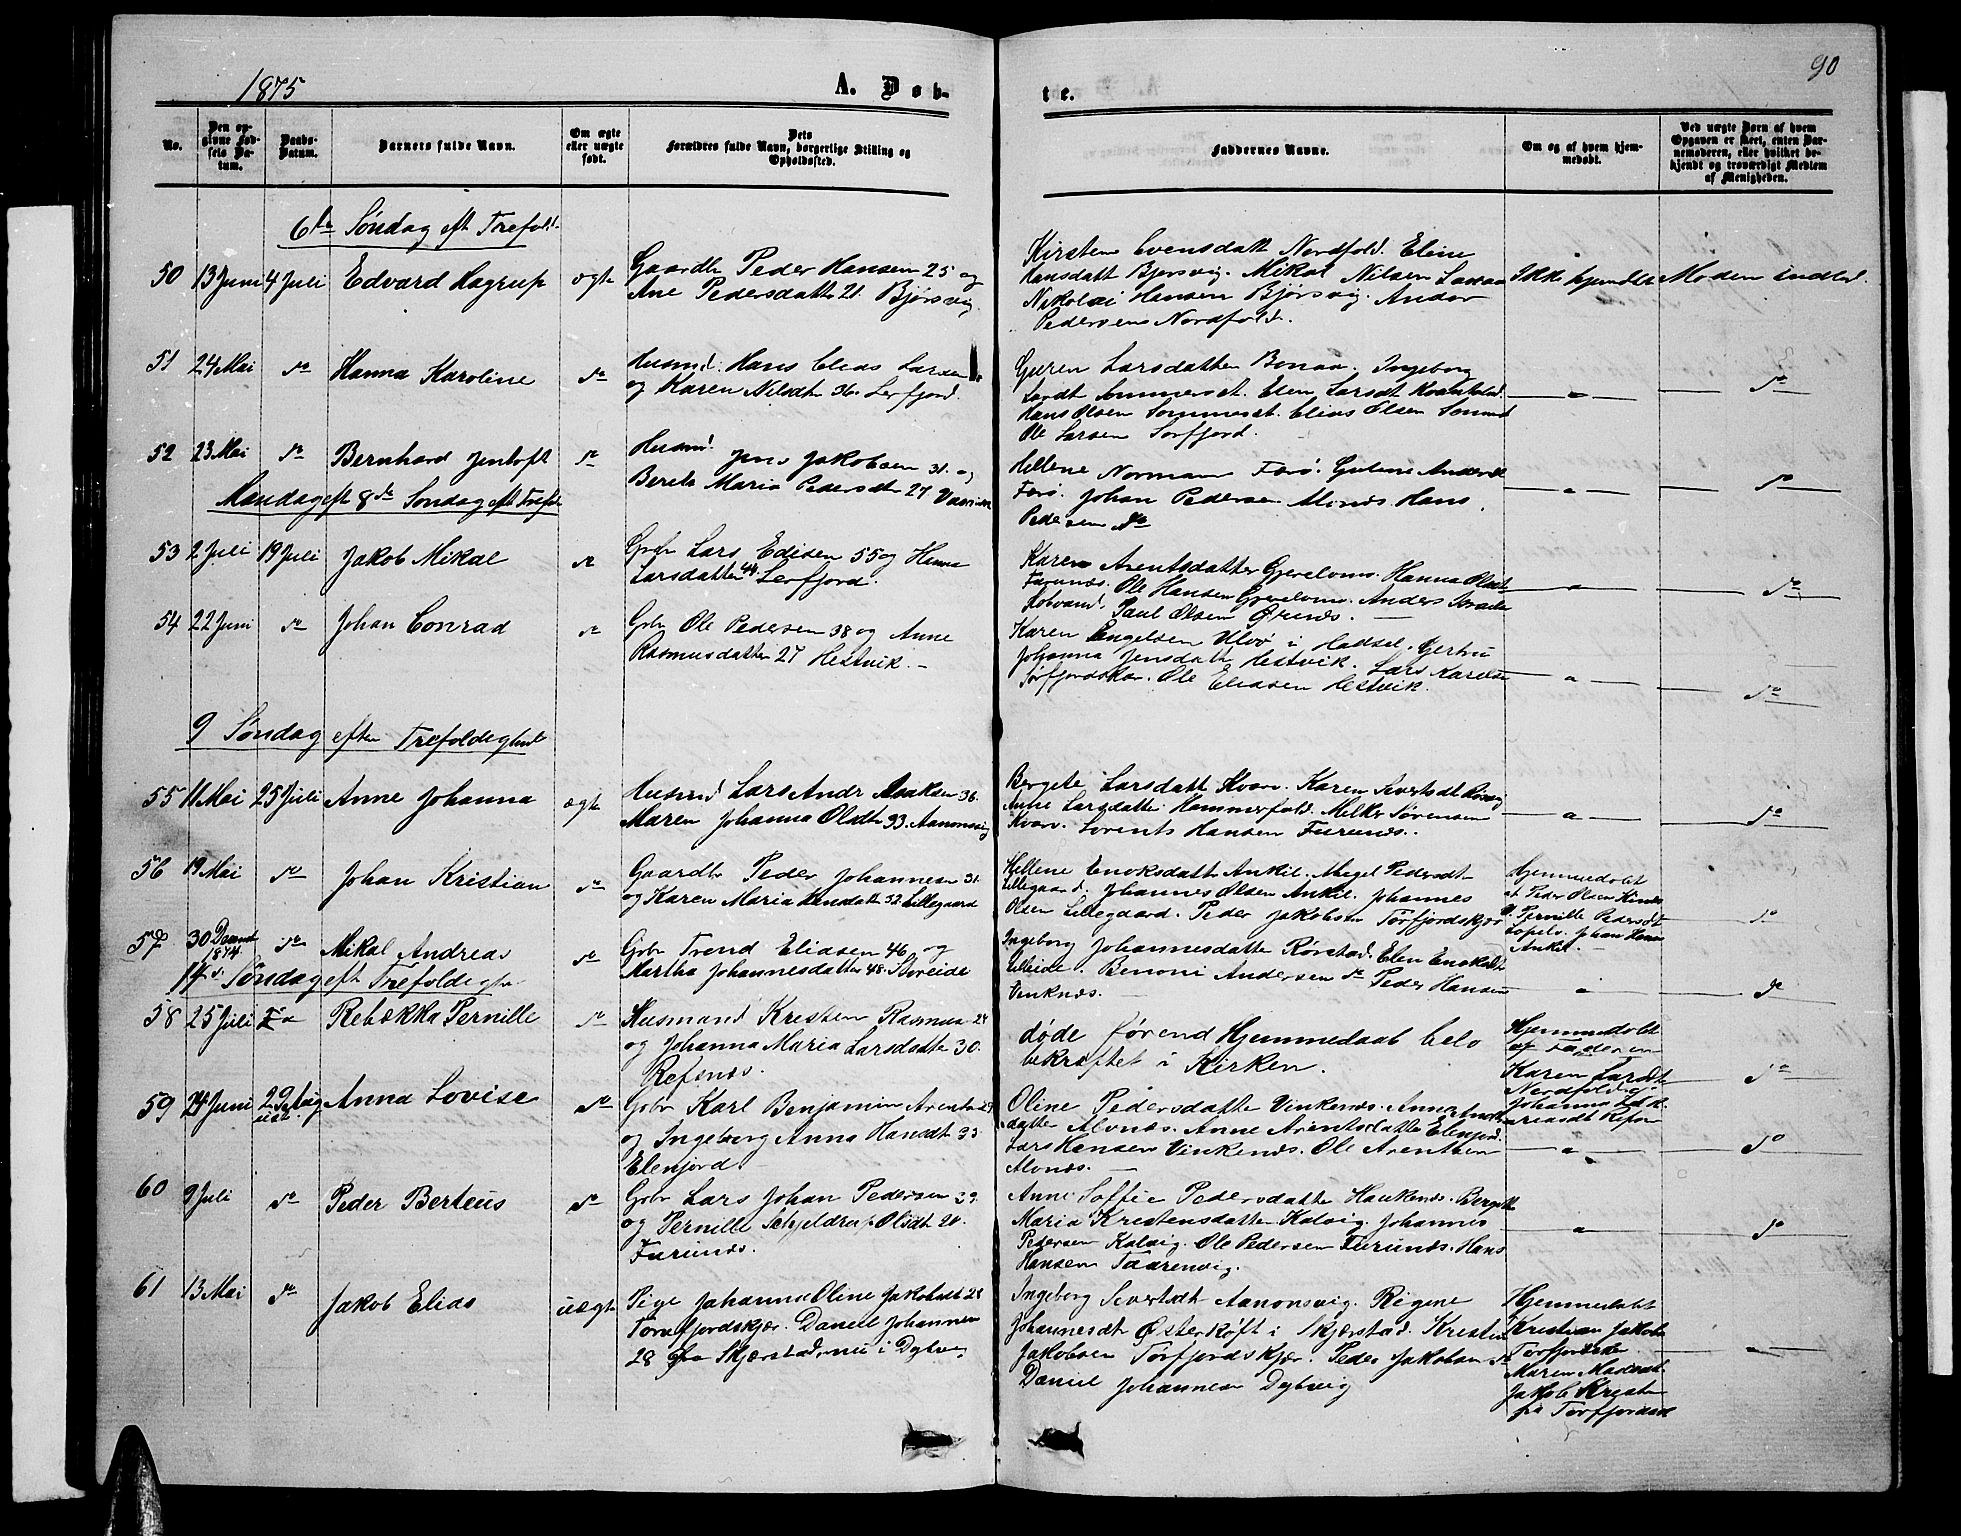 1875
A. Døb-
te.
90
No.
Den op-
givne Fød-
sels Da-
tum.
Daabs-
Datum.
Barnets fulde Navn.
Om ægte
eller uægte
født.
Dets
Forældres fulde Navn, borgerlige Stilling og
Opholdssted.
Faddernes Navne.
Om og af hvem hjem-
medøbt.
Ved uægte Børn af hvem
Opgaven er skeet, enten Bar-
nemoderen, eller hvilket be-
kjendt og troværdigt Medlem
af Menigheden.
6te Søndag eft Trefold.
50 13 Juni 4 Juli Edvard Hagrup ægte
Gaardbr Peder Hansen 25 og
Ane Pedersdatter 21. Bjørsvig
Kirsten Evensdatt Nordfold. Eline
Hansdatt Bjørsvig. Mikal Nilsen
Nikolai Hansen Bjørsvig. Andor
Pedersens Nordfold.
Ikke hjemdøbt
Moderen
51 24 Mai do Hanna Karoline do
Husmd. Hans Elias Larsen
og Karen Nilsdtr 36. Lerfjord.
Guren Larsdatter Bonaa. Ingeborg
Larsdt Sommerset. Elen Larsdt
Hans Olsen Sommerset. Elias Olsen
Ole Larsen Sørfjord.
— " — do
52 23 Mai do Bernhard Jentoft do
Husmd. Jens Jakobsen 31. og
Berith Maria Pedersdtr 27
Hellene Normann Færø.
Færø. Johan Pedersen Alnnæs. Hans
Pedersen do
— " — do
Mandag eft 8de Søndag eft Trefol
53 2 Juli 19 Juli Jakob Mikal do
Grbr Lars Edisen 55 og Hanna
Larsdatter 44. Lerfjord.
Karen Arentsdatter Gjerelvnes. Hanna Olsdt
Furunæs. Ole Hansen Gjerelvnes. Anders
Paul Olsen Ørnnes.
— " — do
54 22 Juni do Johan Conrad do
Grbr Ole Pedersen 38 og Anne
Rasmusdatter 27 Hestvik. —
Karen Engelsen Ulvø i Hadsel.
Johanna Jensdatt Hestvik. Lars
Ole Eliasen Hestvik.
— " — do
9 Søndag efter Trefoldighed
55 11 Mai 25 Juli Anne Johanna ægte
Husmd Lars Andr Isaksen 36.
Maren Johanna Olsdtr 33. Aanonsvig
Bergete Larsdatt Kvarv. Karen Sivertsdt
Anne Larsdatter Hammerfold. Melkr Sørensen
Kvarv. Lorents Hansen Furunæs.
— " — do
56 19 Mai do Johan Kristian do
Gaardbr Peder Johannesen 31.
og Karen Maria 32 Lillegaard
Hellene Enoksdatt Ankil. Magel Pedersdt
Lillegaard. Johannes Olsen Ankil. Johannes
Olsen Lillegaard. Peder Jakobsen Torfjordskjær
Hjemmedøbt
af Peder Olsen
Pernille Pedersdt
Johan Hans
Ankil.
do
57 30 Decemb 1874. do Mikal Andreas do
Grbr Trond Eliasen 46 og
Martha Johannesdatter 48.
Ingeborg Johannesdatter Rørstad. Elen Enoksdt
Benoni Andersen do Peder Hansen
Vinknæs. —
— " — do
14. s. Søndag eft Trefoldighe
58 25 Juli Rebækka Pernille do
Husmand Kristen Rasmus 24
og Johanna Maria Larsdatter 30.
Refsnæs.
døde førend Hjemmedaab blev
bekræftet i Kirken.
Hjemmedøbt
af Faderen
Karen Larsdtr
Nordfold og
Johanna
do
59 24 Juni 29 Aug Anna Lovise do
Grbr Karl Benjamin Arents 29
og Ingeborg Anna Hansdt 33.
Elenjord
Oline Pedersdatter Vinkenæs. Anna
datter Alvnæs. Anne Arentsdatter Elenjord.
Lars Hansen Vinkenæs. Ole Arentsen
Alvnæs. —
— " — do
60 9 Juli do Peder Berteus do
Grbr Lars Johan Pedersen 39.
og Pernille Schjeldrup Olsdt 20.
Furunæs.
Anne Soffie Pedersdatter Haukenæs. Bergitt
Maria Kristensdatter Kalvig. Johannes
Pedersen Kalvig. Ole Pedersen Furunæs. Hans
Hansen Taarenvig.
— " — do
61 13 Mai do Jakob Elias uægte
Pige Johanna Oline Jakobsdt 28
Torfjordskjær. Daniel Johannesen
28 fra Skjærstad, nu i Dybvig
Ingeborg Sivertsdt Aanonsvig. Regine
Johannesdt Østerkløft i Skjærstad. Kristian
Jakobsen Torfjordskjær. Peder Jakobsen do
Daniel Johannesen Dybvig
Hjemmedøbt
Kristian Jakobs
Torfjordskjær
Maren
Jakob Kristen
fra Torfjordskj
— " —